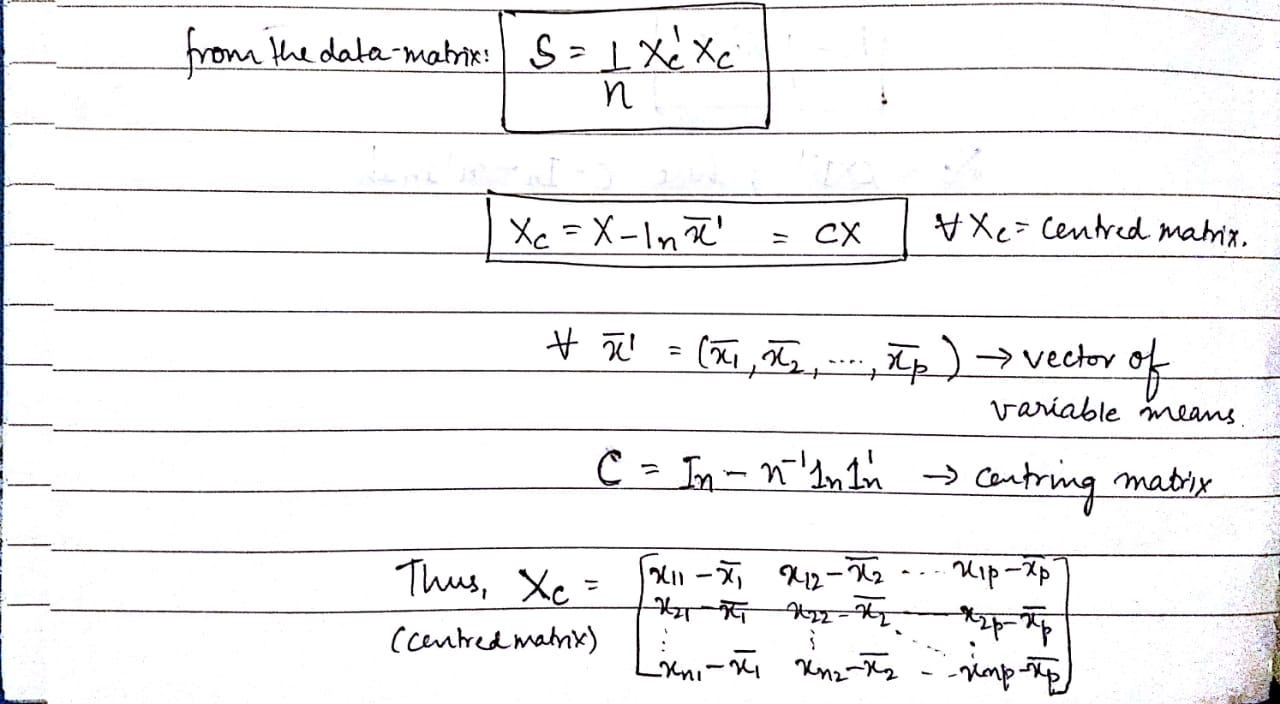 from the data-matrix: S = 1/n Xc' Xc
Xc = X - 1n x̄' = CX ∀ Xc = Centred matrix.
∀ x̄' = (x̄1, x̄2, ...., x̄p) → vector of
variable means.
C = In - n⁻¹ 1n 1n' → Centring matrix
Thus, Xc = [x11 - x̄1 x12 - x̄2 .... x1p - x̄p
x21 - x̄1 x22 - x̄2 ... x2p - x̄p
(centred matrix) ⋮ ⋮ ⋮
xn1 - x̄1 xn2 - x̄2 - - xnp - x̄p]